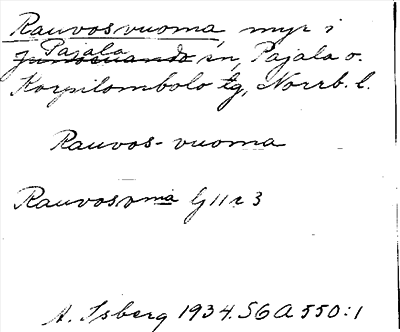 Rauvosvuoma, myr i
Pajala
Junosuando sn, Pajala o.
Korpilombolo tg, Norrb. l.
Rauvos-vuoma
Rauvosvma G II r 3
A. Isberg 1934. S6A 550:1